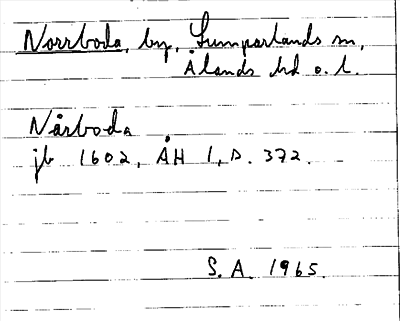 Norrboda, by, Lumparlands sn,
Ålands hd o. l.
Nårboda
jb 1602, ÅH 1, s. 372.
S. A. 1965.